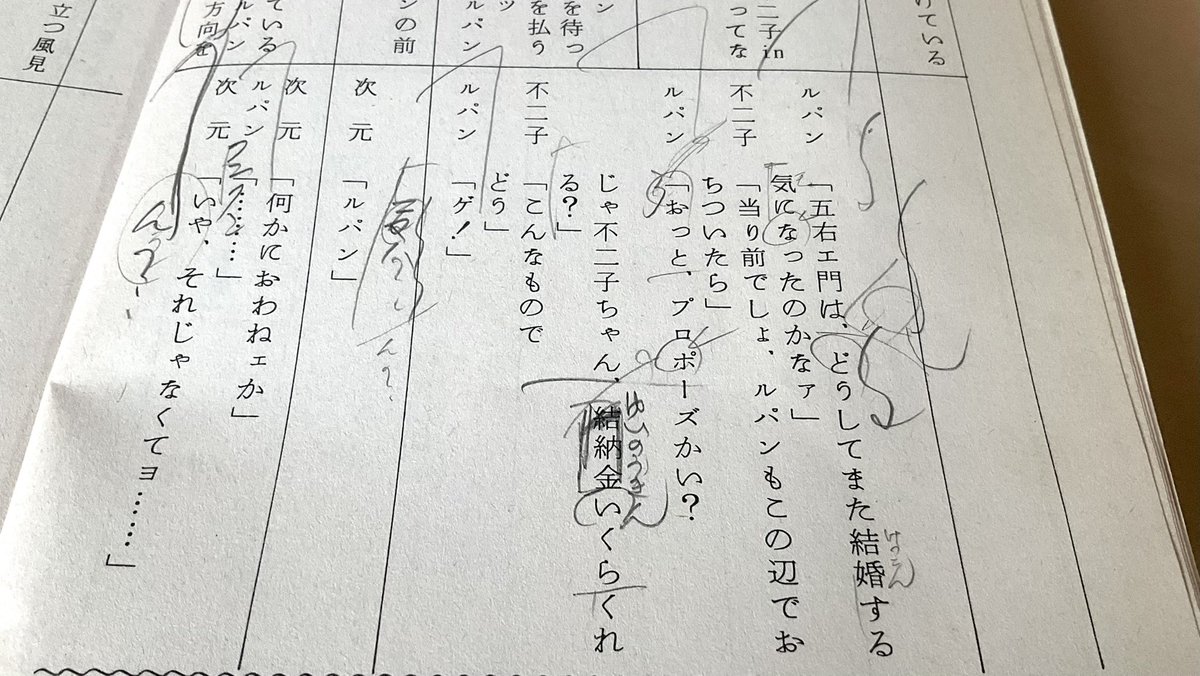 けている
二子in
ってな
ン
を待っ
を払う
ッ
ルパン
ンの前
ている
ルパン
方向を
立つ風見
ルパン
「五右ェ門は、どうしてまた結婚する
けっこん
気になったのかなァ」
不二子
「当り前でしょ、ルパンもこの辺でお
ちついたら」
ルパン
「おっと、プロポーズかい?
じゃ不二子ちゃん、結納金いくらくれ
ゆいのうきん
る?」
不二子
「こんなもので
どう」
ルパン
「ゲ!」
次元
「ルパン」
ん?
次元
「何かにおわねェか」
ルパン
「……」
次元
「いや、それじゃなくてヨ……」
ん?